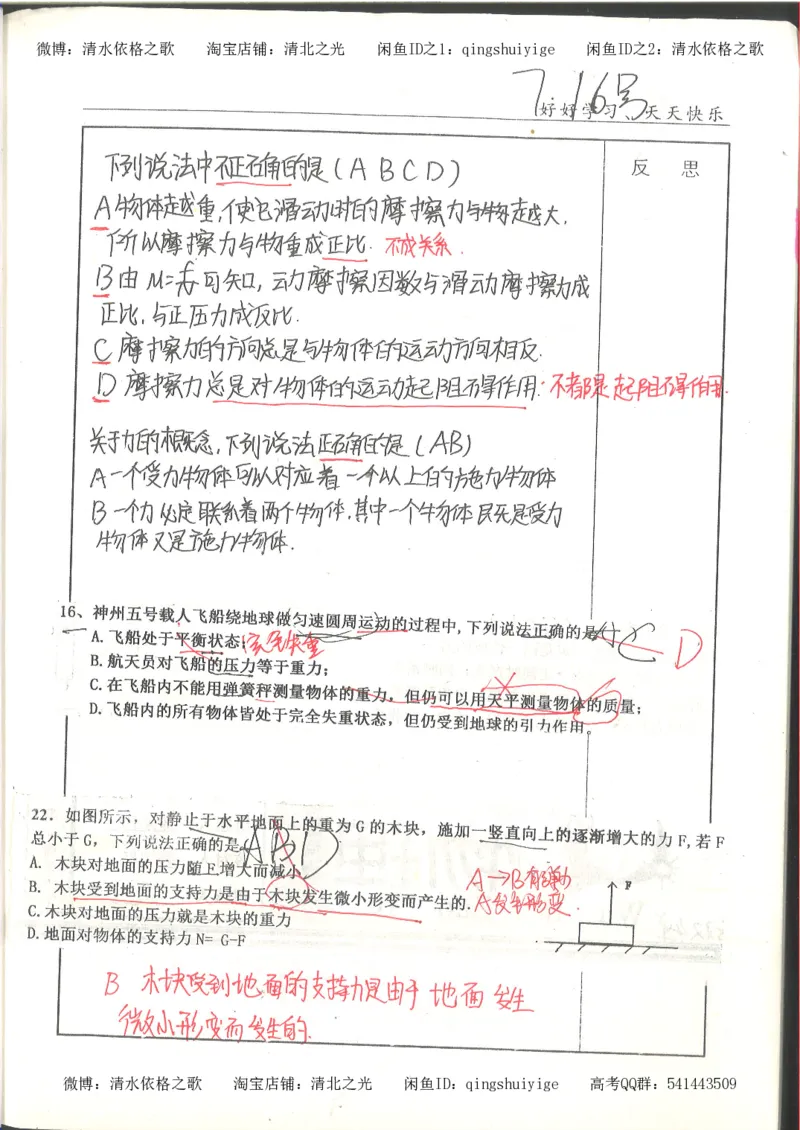 微博：清水依格之歌 淘宝店铺：清北之光 闲鱼ID之1：qingshuiyige 闲鱼ID之2：清水依格之歌
7.16号
好好学习、天天快乐
反 思
下列说法中不正确的是（A B C D）
A物体越重，使它滑动时的摩擦力与物越大，
所以摩擦力与物重成正比. 不成关系.
B由μ=f可知，动摩擦因数与滑动摩擦力成
正比，与正压力成反比.
C摩擦力的方向总是与物体的运动方向相反.
D摩擦力总是对物体的运动起阻碍作用. 不都是起阻碍作用.
关于力的概念，下列说法正确的是（AB）
A一个受力物体可以对应着一个以上的施力物体
B一个力必定联系着两个物体，其中一个物体既是受力
物体又是施力物体.
16、神州五号载人飞船绕地球做匀速圆周运动的过程中，下列说法正确的是 C D
A.飞船处于平衡状态；完全失重
B.航天员对飞船的压力等于重力；
C.在飞船内不能用弹簧秤测量物体的重力，但仍可以用天平测量物体的质量；
D.飞船内的所有物体皆处于完全失重状态，但仍受到地球的引力作用。
22．如图所示，对静止于水平地面上的重为 G 的木块，施加一竖直向上的逐渐增大的力 F,若 F
总小于 G，下列说法正确的是 ABD
A. 木块对地面的压力随F增大而减小
B. 木块受到地面的支持力是由于木块发生微小形变而产生的.
C.木块对地面的压力就是木块的重力
D.地面对物体的支持力N= G-F
A→B有弹力
A发生形变.
F
B 木块受到地面的支持力是由于地面发生
微小形变而发生的.
微博：清水依格之歌 淘宝店铺：清北之光 闲鱼ID：qingshuiyige 高考QQ群：541443509